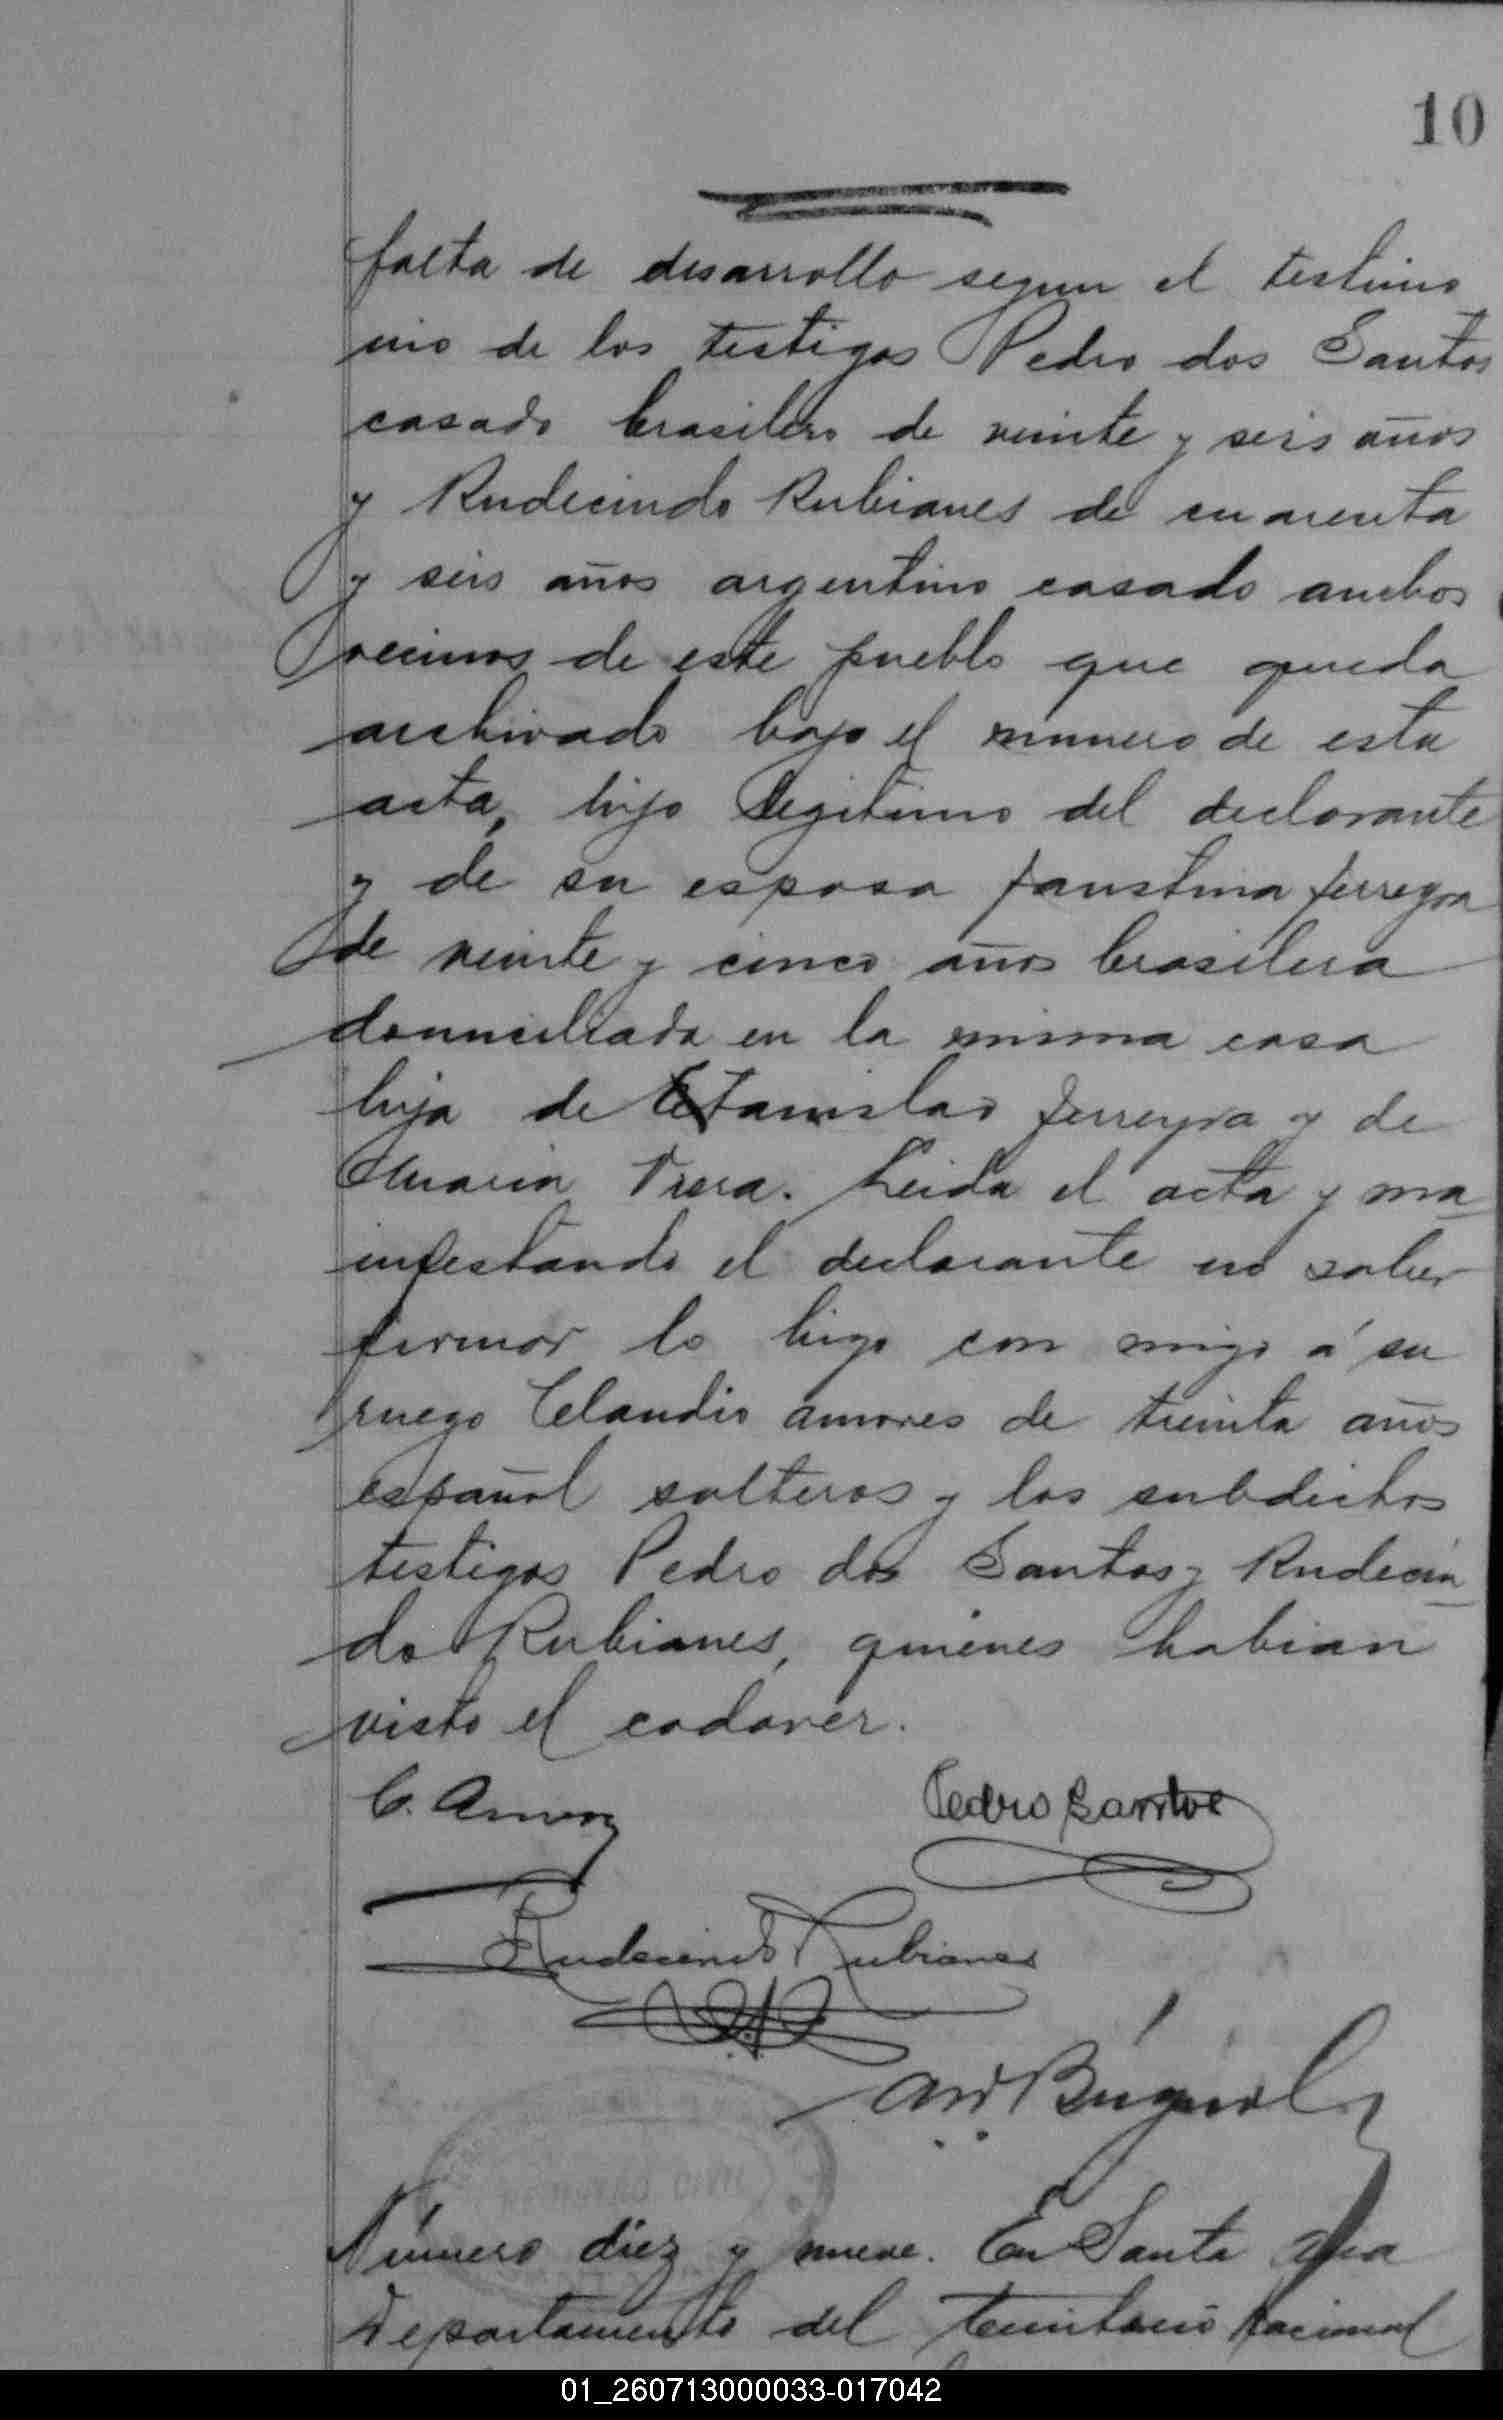 10
falta de desarrollo segun el testimo
nio de los testigos Pedro dos Santos
casado brasilero de veinte y seis años
y Rudecindo Rubianes de cuarenta
y seis años argentino casado ambos
vecinos de este pueblo que queda
archivado bajo el numero de esta
acta, hijo legitimo del declarante
y de su esposa faustina ferreyra
de veinte y cinco años brasilera
domiciliada en la misma casa
hija de Etanislao ferreyra y de
Maria . Leida el acta y ma
nifestando el declarante no saber
firmar lo hizo con migo á su
ruego Claudio amores de treinta años
español solteros y los subdichos
testigos Pedro dos Santos y Rudecin
do Rubianes, quienes habian
visto el cadaver.
C. Amores
Pedro Santos
Rudecindo Rubianes
Número diez y nueve. En Santa Ana
Departamento del territorio nacional
01_260713000033-017042